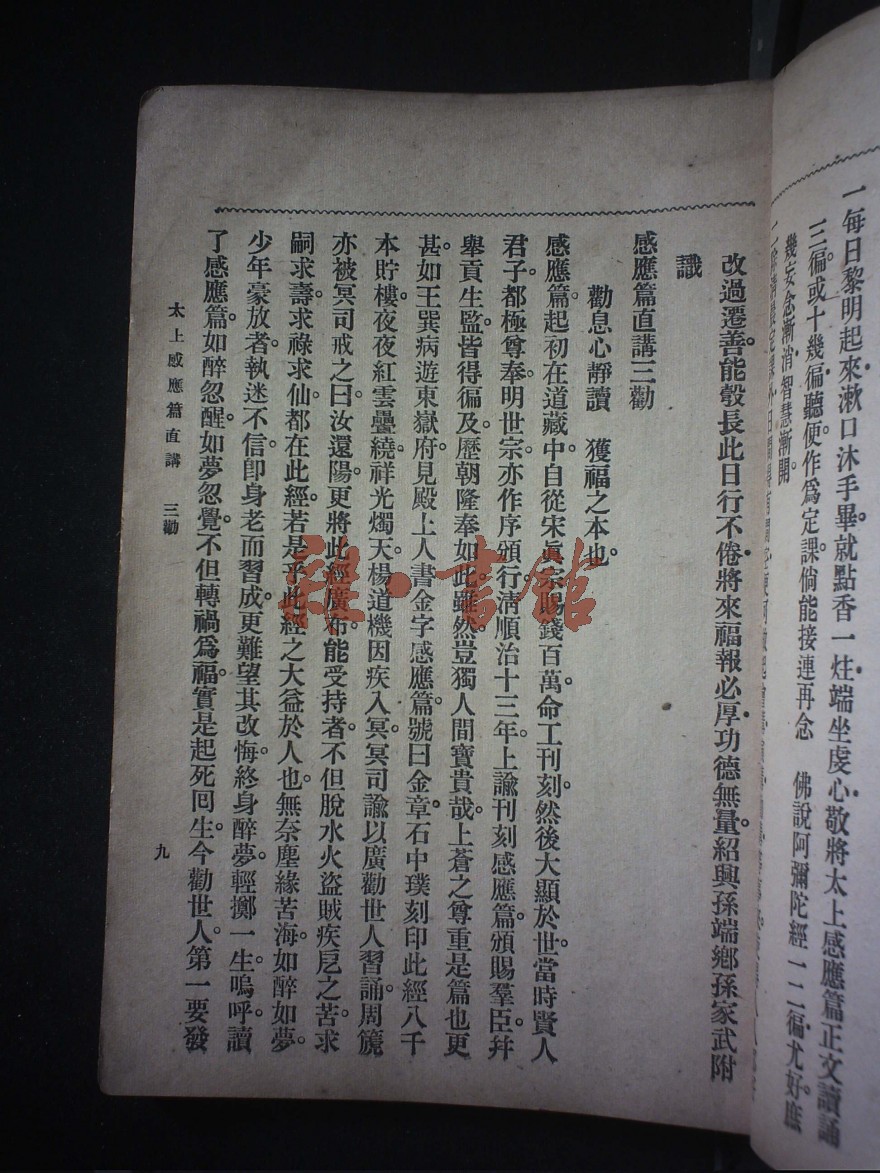 一每日黎明起來漱口沐手畢就點香一炷端坐虔心敬將太上感應篇正文讀誦
三徧或十幾徧聽便作爲定課倘能接連再念　佛說阿彌陀經一二徧尤好庶
幾妄念漸消智慧漸開
改過遷善。能彀長此日行不倦將來福報必厚功德無量。紹興孫端鄉孫家武附
識
感應篇直講三勸
勸息心靜讀　獲福之本也。
感應篇。起初在道藏中。自從宋眞宗賜錢百萬。命工刊刻。然後大顯於世。當時賢人
君子。都極尊奉。明世宗亦作序頒行。淸順治十三年。上諭刊刻感應篇。頒賜羣臣。幷
舉貢生監。皆得徧及。歷朝隆奉如此。雖然。豈獨人間寶貴哉。上蒼之尊重是篇也更
甚。如王巽病遊東嶽府。見殿上人書金字感應篇。號曰金章。石中璞刻印此經八千
本貯樓。夜夜紅雲疊繞。祥光燭天。楊道機因疾入冥。冥司諭以廣勸世人習誦。周篪
亦被冥司戒之曰。汝還陽。更將此經廣布。能受持者。不但脫水火盜賊疾戹之苦。求
嗣求壽。求祿求仙。都在此經。若是乎此經之大益於人也。無奈塵緣苦海。如醉如夢。
少年豪放者。執迷不信。卽身老而習成。更難望其改悔。終身醉夢。輕擲一生。嗚呼。讀
了感應篇。如醉忽醒。如夢忽覺。不但轉禍爲福。實是起死囘生。今勸世人。第一要發
太上感應篇直講　三勸
九
羣·書館